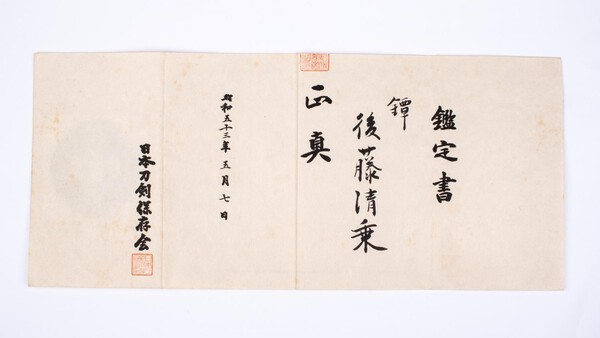 鑑定書
鐔
後藤清乗
正真
昭和五十三年五月七日
日本刀剣保存会